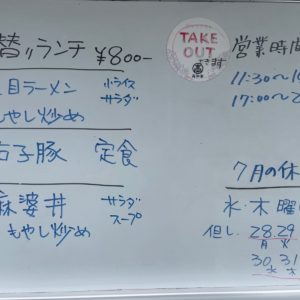 替りランチ ¥800-
目ラーメン 小ライス
サラダ
もやし炒め
子豚 定食
麻婆丼 サラダ
スープ
もやし炒め
TAKE
OUT
できます
営業時間
11:30～1
17:00～2
7月の休
水・木曜
但し 28.29
月 火
30.31
水 木